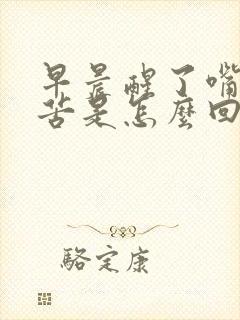 早晨醒了嘴
苦是怎麼回
駱定康